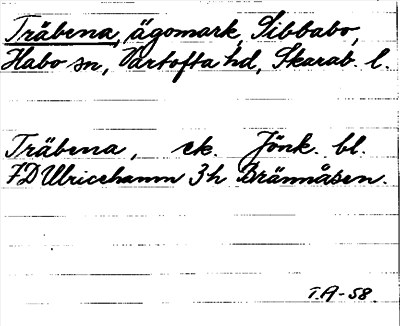 Träbena, ägomark, Sibbabo,
Habo sn, Vartofta hd, Skarab. l.
Träbena, ek. Jönk. bl.
7D Ulricehamn 3h Brännåsen.
T.A-58.